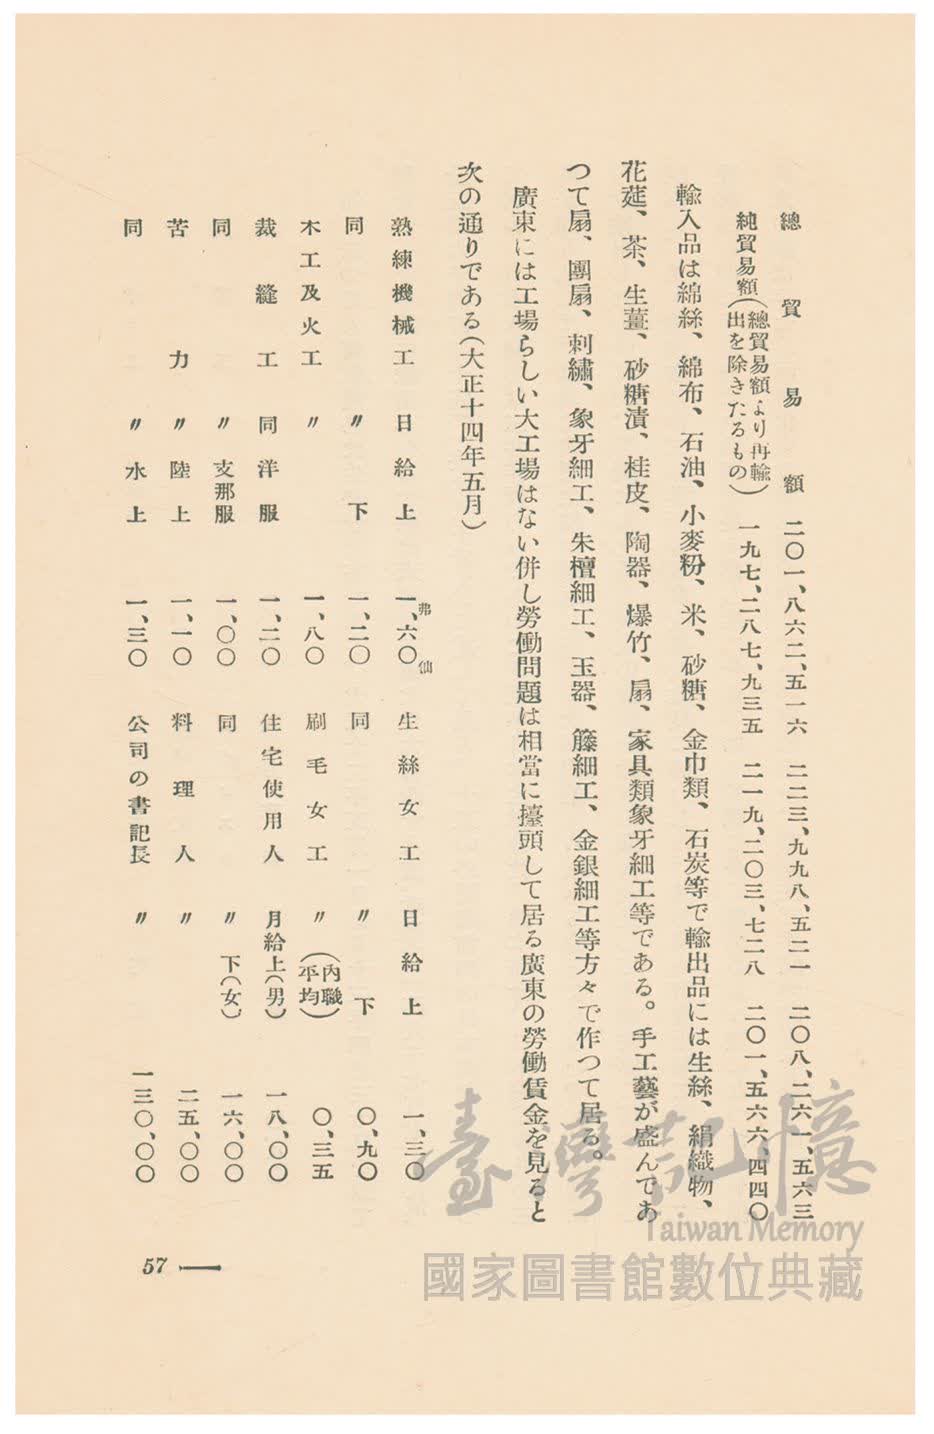 總貿易額 二〇一、八六二、五一六 二二三、九九八、五二一 二〇八、二六一、五六三
純貿易額(總貿易額より再輸出を除きたるもの) 一九七、二八七、九三五 二一九、二〇三、七二八 二〇一、五六六、四四〇
輸入品は綿絲、綿布、石油、小麥粉、米、砂糖、金巾類、石炭等で輸出品には生絲、絹織物、
花莚、茶、生薑、砂糖漬、桂皮、陶器、爆竹、扇、家具類象牙細工等である。手工藝が盛んであ
つて扇、團扇、刺繡、象牙細工、朱檀細工、玉器、籐細工、金銀細工等方々で作つて居る。
廣東には工場らしい大工場はない併し勞働問題は相當に擡頭して居る廣東の勞働賃金を見ると
次の通りである(大正十四年五月)
熟練機械工 日給上 一、六〇 生絲女工 日給上 一、三〇
弗 仙
同 〃 下 一、二〇 同 〃 下 〇、九〇
木工及火工 〃 一、八〇 刷毛女工 〃(內職平均) 〇、三五
裁縫工 同洋服 一、二〇 住宅使用人 月給上(男) 一八、〇〇
同 〃 支那服 一、〇〇 同 〃 下(女) 一六、〇〇
苦力 〃 陸上 一、一〇 料理人 〃 二五、〇〇
同 〃 水上 一、三〇 公司の書記長 〃 一三〇、〇〇
57
臺灣記憶
Taiwan Memory
國家圖書館數位典藏